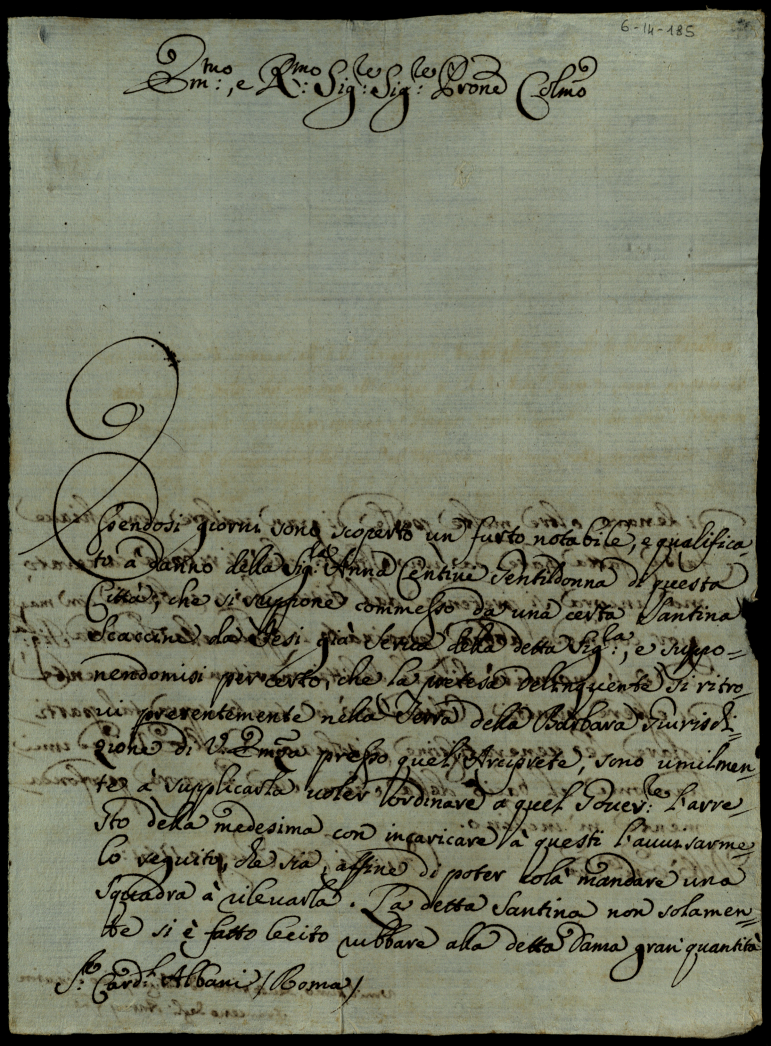 6-14-185
Em:mo, e R:mo Sig:re Sig:re Prone Colmo
Essendosi giorni sono scoperto un furto notabile, e qualifica-
to à danno della Sig:ra Anna Centini Gentildonna di questa
Città, che si suppone commesso da una certa Santina
Scascini da Jesi già serva della detta Sig:ra, e suppo-
nendomisi per certo, che la pretesa delinquente si ritro-
vi presentemente nella Terra della Barbara Giurisdi-
zione di V: Emza presso quel Arciprete, sono umilmen-
te à supplicarla voler ordinare a quel Gover:re l'arre-
sto della medesima con incaricare à questi l'avvisarme-
lo seguito, che sia, affine di poter colà mandare una
Squadra à rilevarla. La detta Santina non solamen-
te si è fatto lecito rubbare alla detta Dama gran quantità
S:r Card:l Albani (Roma)